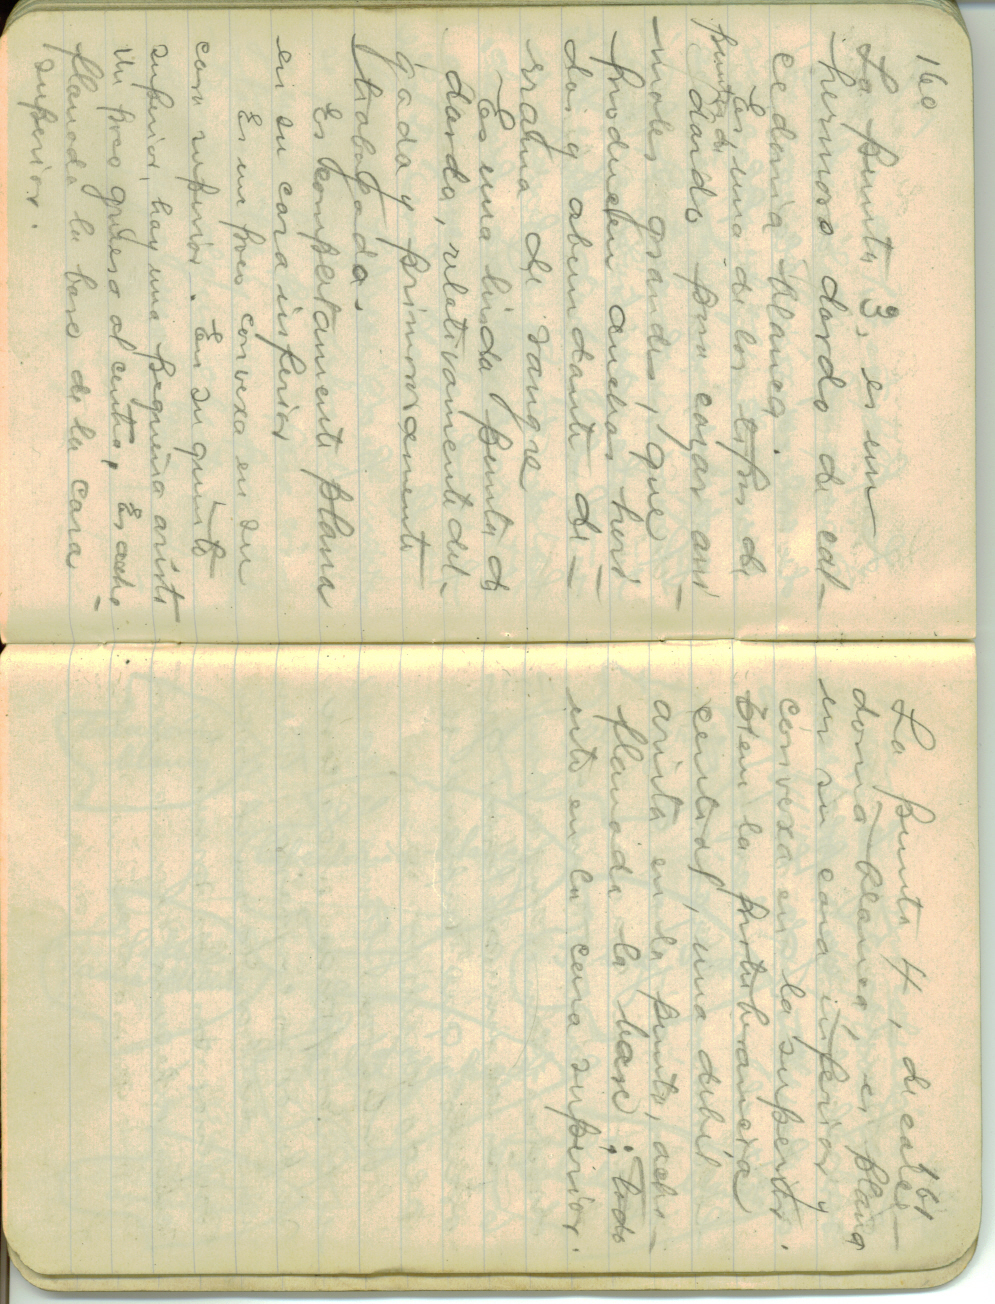 160
La punta 3, es un
hermoso dardo de cal-
cedonia blanca.
Es una de los tipos de
puntas de
dardo para cazar ani-
males grandes, que
producían anchas heri-
das y abundante de-
rrame de sangre
Es una linda punta de
dardo, relativamente del-
gada y primorosamente
trabajada.
Es completamente plana
en su cara inferior
Es un poco convexa en su
cara superior. En su quinto
superior, hay una pequeña arista
un poco grueso al centro, Es acha-
flanada la base de la cara
superior.
161
La punta 4, de calce-
donia blanca, es plana
en su cara inferior y
convexa en la superior.
Tiene la protuberancia
central, una débil
arista en la punta, acha-
flanada la base; todo
esto en la cara superior.